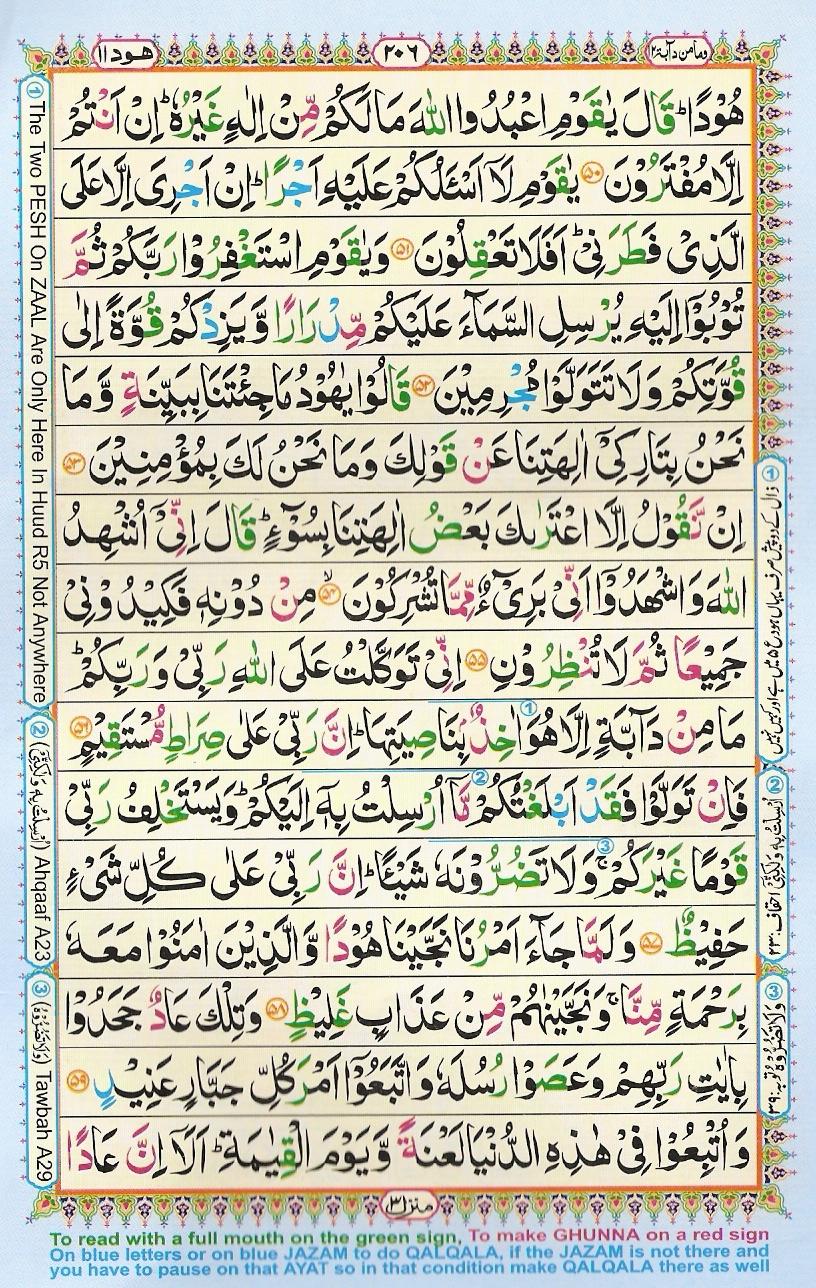 ومامن دآبة ١٢
٢٠٦
هود ١١
هُوْدًا ؕ قَالَ يٰقَوْمِ اعْبُدُوا اللّٰهَ مَا لَكُمْ مِّنْ اِلٰهٍ غَيْرُهٗ ؕ اِنْ اَنْتُمْ
اِلَّا مُفْتَرُوْنَ ۝۵۰ يٰقَوْمِ لَاۤ اَسْـَٔلُكُمْ عَلَيْهِ اَجْرًا ؕ اِنْ اَجْرِىَ اِلَّا عَلَى
الَّذِىْ فَطَرَنِىْ ؕ اَفَلَا تَعْقِلُوْنَ ۝۵۱ وَيٰقَوْمِ اسْتَغْفِرُوْا رَبَّكُمْ ثُمَّ
تُوْبُوْۤا اِلَيْهِ يُرْسِلِ السَّمَآءَ عَلَيْكُمْ مِّدْرَارًا وَّيَزِدْكُمْ قُوَّةً اِلٰى
قُوَّتِكُمْ وَلَا تَتَوَلَّوْا مُجْرِمِيْنَ ۝۵۲ قَالُوْا يٰهُوْدُ مَا جِئْتَنَا بِبَيِّنَةٍ وَّمَا
نَحْنُ بِتَارِكِىْۤ اٰلِهَتِنَا عَنْ قَوْلِكَ وَمَا نَحْنُ لَكَ بِمُؤْمِنِيْنَ ۝۵۳
اِنْ نَّقُوْلُ اِلَّا اعْتَرٰىكَ بَعْضُ اٰلِهَتِنَا بِسُوْٓءٍ ؕ قَالَ اِنِّىْۤ اُشْهِدُ
اللّٰهَ وَاشْهَدُوْۤا اَنِّىْ بَرِىْٓءٌ مِّمَّا تُشْرِكُوْنَ ۙ۝۵۴ مِنْ دُوْنِهٖ فَكِيْدُوْنِىْ
جَمِيْعًا ثُمَّ لَا تُنْظِرُوْنِ ۝۵۵ اِنِّىْ تَوَكَّلْتُ عَلَى اللّٰهِ رَبِّىْ وَرَبِّكُمْ ؕ
مَا مِنْ دَآبَّةٍ اِلَّا هُوَ اٰخِذٌۢ بِنَاصِيَتِهَا ؕ اِنَّ رَبِّىْ عَلٰى صِرَاطٍ مُّسْتَقِيْمٍ ۝۵۶
فَاِنْ تَوَلَّوْا فَقَدْ اَبْلَغْتُكُمْ مَّاۤ اُرْسِلْتُ بِهٖۤ اِلَيْكُمْ ؕ وَيَسْتَخْلِفُ رَبِّىْ
قَوْمًا غَيْرَكُمْ ۚ وَلَا تَضُرُّوْنَهٗ شَيْـًٔا ؕ اِنَّ رَبِّىْ عَلٰى كُلِّ شَىْءٍ
حَفِيْظٌ ۝۵۷ وَلَمَّا جَآءَ اَمْرُنَا نَجَّيْنَا هُوْدًا وَّالَّذِيْنَ اٰمَنُوْا مَعَهٗ
بِرَحْمَةٍ مِّنَّا ۚ وَنَجَّيْنٰهُمْ مِّنْ عَذَابٍ غَلِيْظٍ ۝۵۸ وَتِلْكَ عَادٌ جَحَدُوْا
بِاٰيٰتِ رَبِّهِمْ وَعَصَوْا رُسُلَهٗ وَاتَّبَعُوْۤا اَمْرَ كُلِّ جَبَّارٍ عَنِيْدٍ ۝۵۹
وَاُتْبِعُوْا فِىْ هٰذِهِ الدُّنْيَا لَعْنَةً وَّيَوْمَ الْقِيٰمَةِ ؕ اَلَاۤ اِنَّ عَادًا
منزل ٣
① The Two PESH On ZAAL Are Only Here In Huud R5 Not Anywhere
② (اُرْسِلْتُ بِهٖ وَلٰكِنِّىْ) Ahqaaf A23
③ (وَلَا تَضُرُّوْهُ) Tawbah A29
① ذال کے دو پیش صرف یہاں ہود ع ۵ میں ہے اور کہیں نہیں
② اُرْسِلْتُ بِهٖ وَلٰكِنِّىْ احقاف: ۲۳
③ وَلَا تَضُرُّوْهُ توبہ: ۳۹
To read with a full mouth on the green sign, To make GHUNNA on a red sign
On blue letters or on blue JAZAM to do QALQALA, if the JAZAM is not there and
you have to pause on that AYAT so in that condition make QALQALA there as well